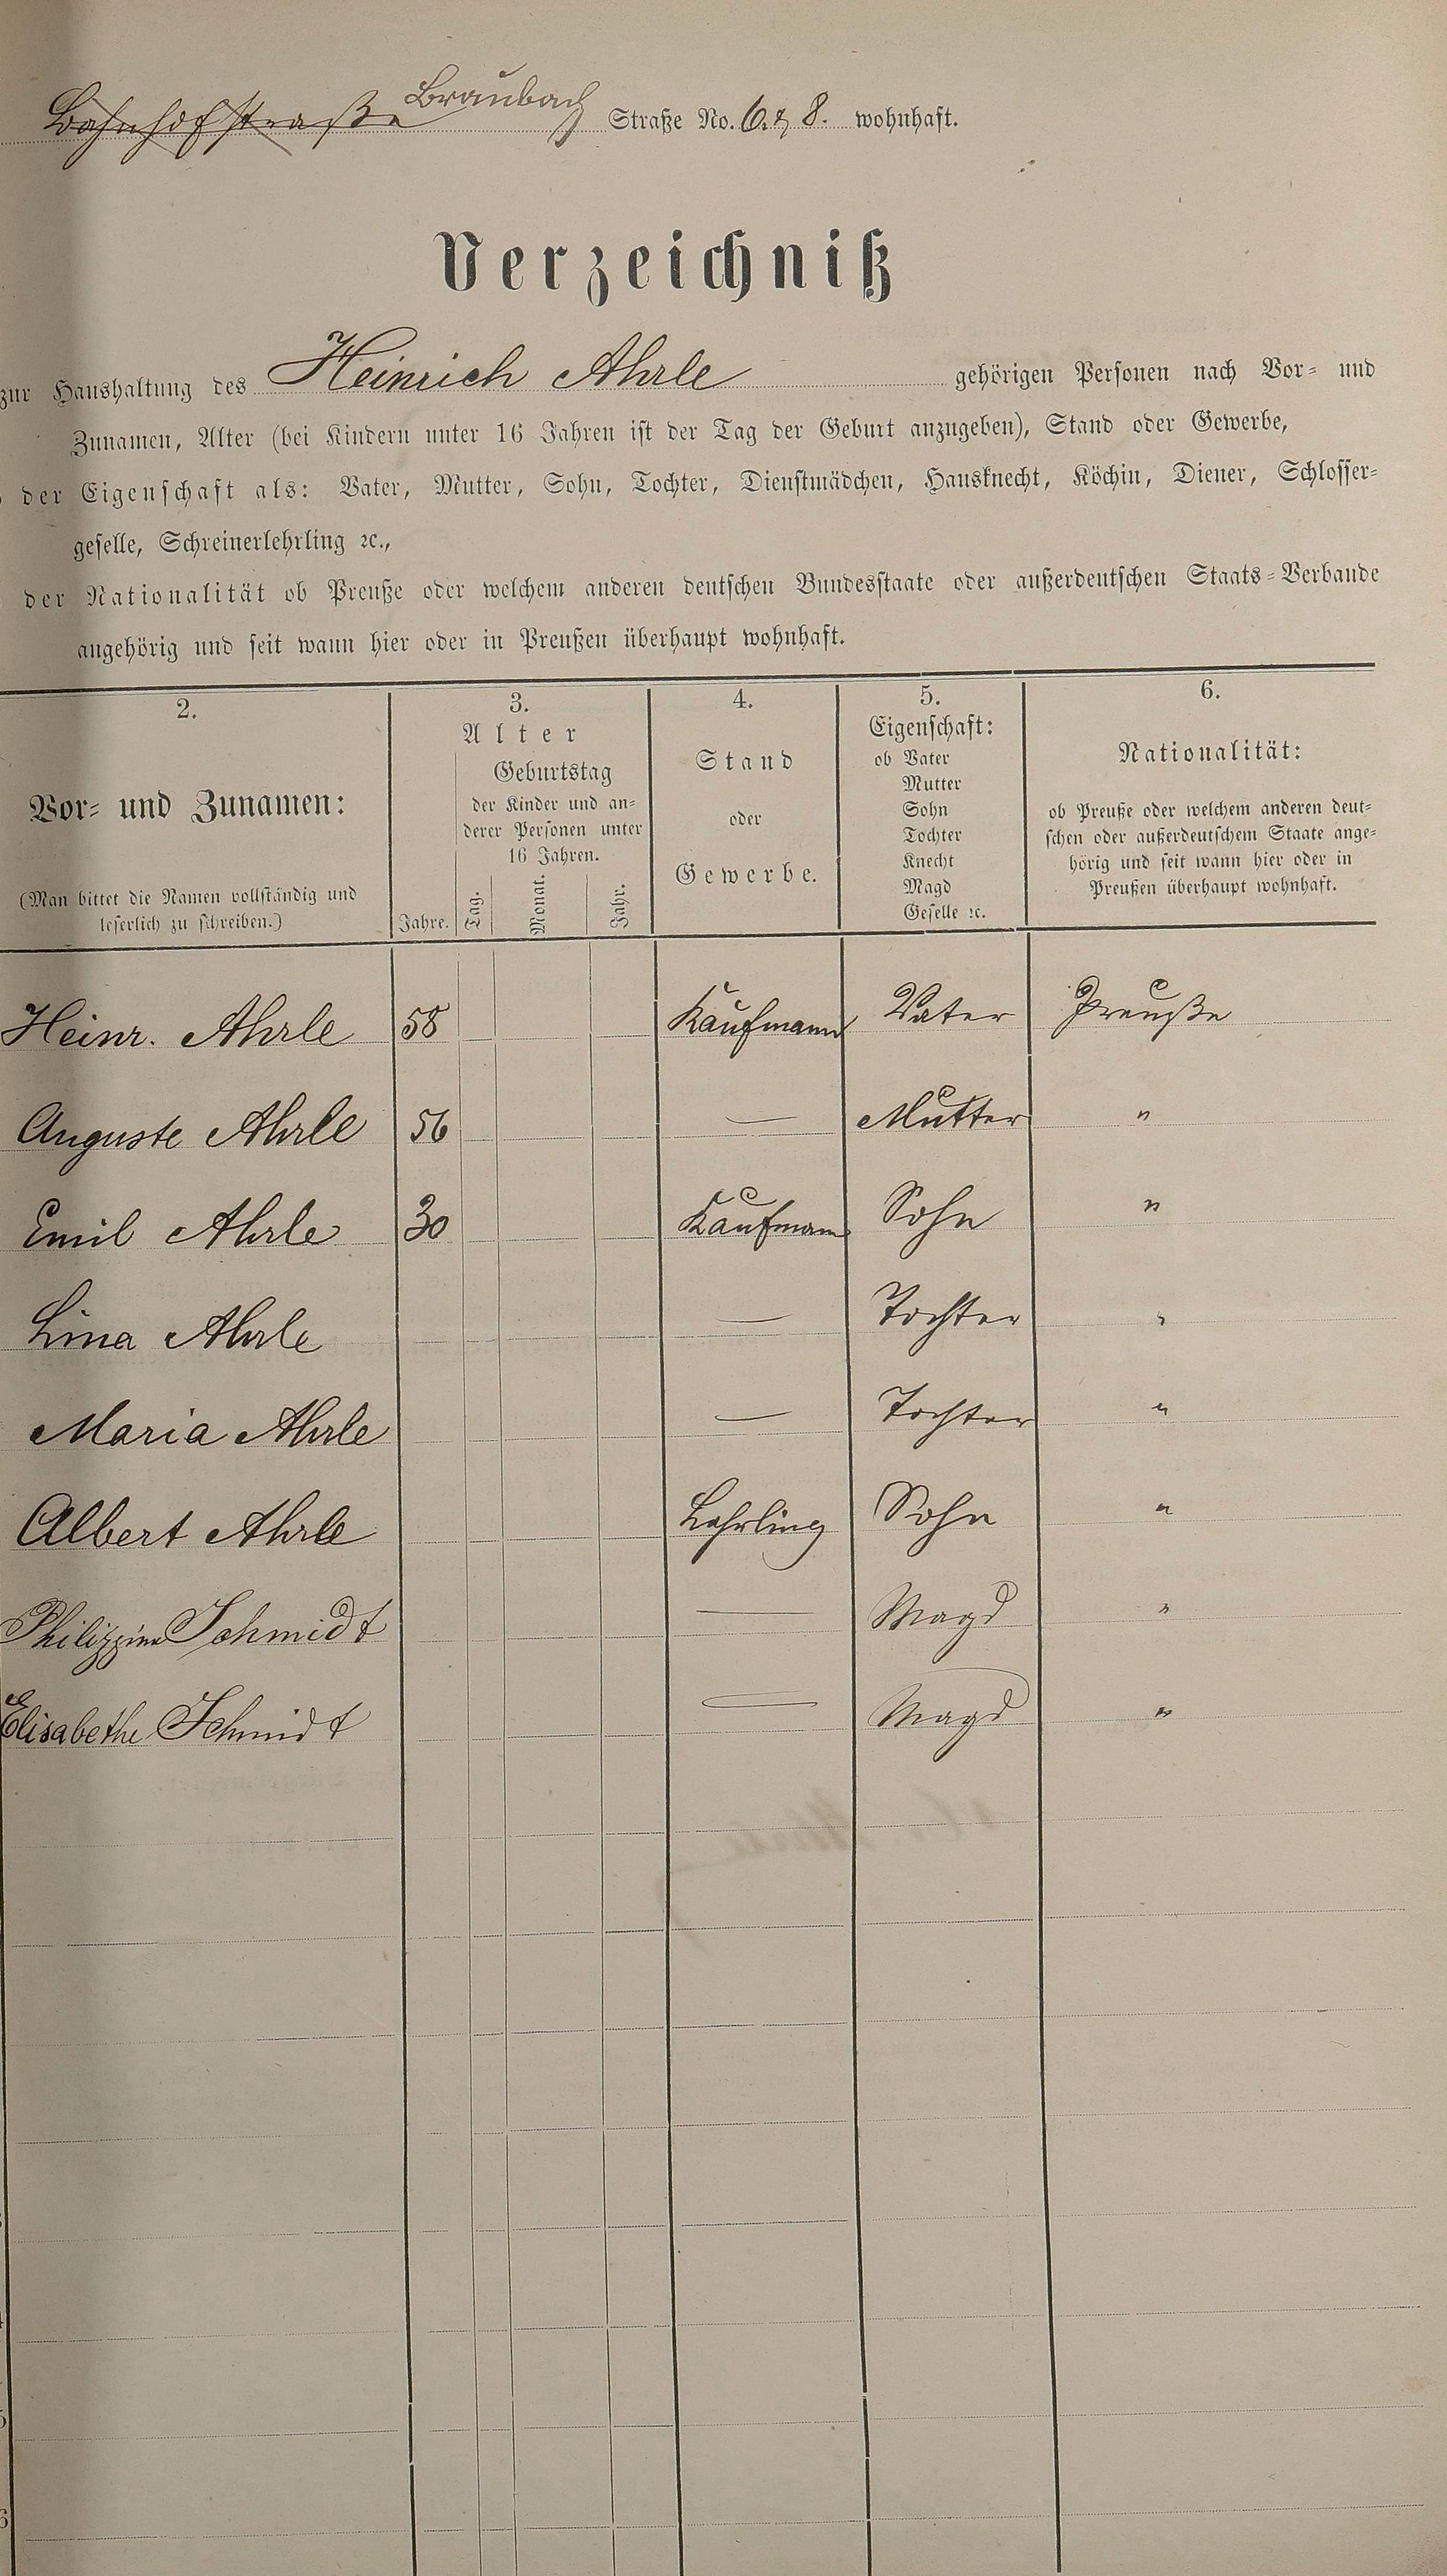 Bahnhofstraße Braubach Straße No. 6 & 8. wohnhaft.
Verzeichniß
zur Haushaltung des Heinrich Ahrle gehörigen Personen nach Vor- und
Zunamen, Alter (bei Kindern unter 16 Jahren ist der Tag der Geburt anzugeben), Stand oder Gewerbe,
der Eigenschaft als: Vater, Mutter, Sohn, Tochter, Dienstmädchen, Hausknecht, Köchin, Diener, Schlosser-
geselle, Schreinerlehrling ꝛc.,
der Nationalität ob Preuße oder welchem anderen deutschen Bundesstaate oder außerdeutschen Staats-Verbande
angehörig und seit wann hier oder in Preußen überhaupt wohnhaft.
2.
Vor- und Zunamen:
(Man bittet die Namen vollständig und
leserlich zu schreiben.)
3.
Alter
Geburtstag
der Kinder und an-
derer Personen unter
16 Jahren.
Jahre. Tag. Monat. Jahr.
4.
Stand
oder
Gewerbe.
5.
Eigenschaft:
ob Vater
Mutter
Sohn
Tochter
Knecht
Magd
Geselle ꝛc.
6.
Nationalität:
ob Preuße oder welchem anderen deut-
schen oder außerdeutschem Staate ange-
hörig und seit wann hier oder in
Preußen überhaupt wohnhaft.
Heinr. Ahrle 58 Kaufmann Vater Preuße
Auguste Ahrle 56 — Mutter "
Emil Ahrle 30 Kaufmann Sohn "
Lina Ahrle — Tochter "
Maria Ahrle — Tochter "
Albert Ahrle Lehrling Sohn "
Philippine Schmidt — Magd "
Elisabethe Schmidt — Magd "